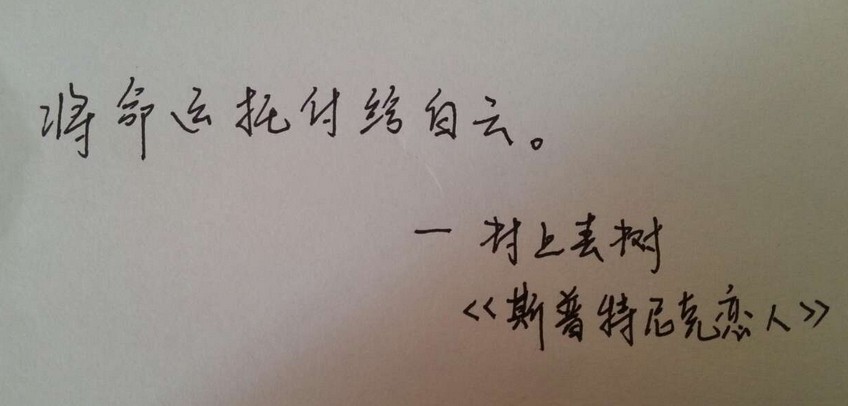 将命运托付给白云。
— 村上春树
<<斯普特尼克恋人>>